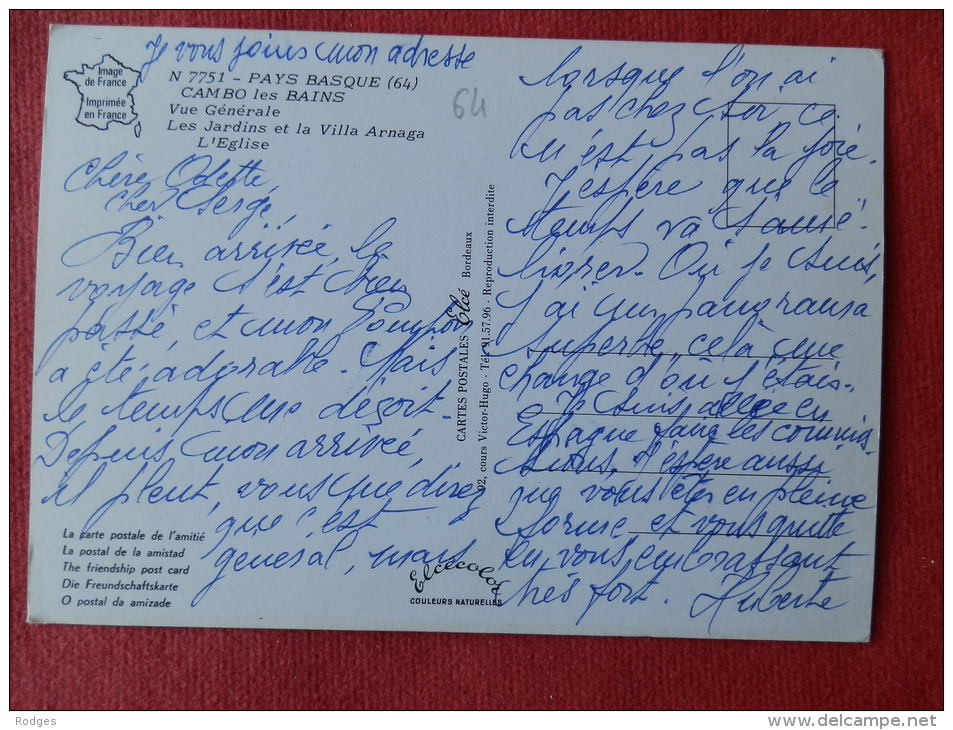 Je vous joins mon adresse
Image
de France
Imprimée
en France
N 7751 - PAYS BASQUE (64)
CAMBO les BAINS
Vue Générale
Les Jardins et la Villa Arnaga
L'Eglise
64
Chère Odette,
Cher Serge,
Bien arrivée, le
voyage s'est bien
passé, et mon Pompon
a été adorable. Mais
le temps me déçoit.
Depuis mon arrivée,
il pleut, vous me direz
que c'est
général, mais
La carte postale de l'amitié
La postal de la amistad
The friendship post card
Die Freundschaftskarte
O postal da amizade
Elcécolor
COULEURS NATURELLES
CARTES POSTALES Elcé Bordeaux
92, cours Victor-Hugo - Tél. 91.57.96 - Reproduction interdite
lorsque l'on ai
pas chez soi, ce
n'est pas la joie.
J'espère que le
temps va s'amé-
liorer. Où je suis,
j'ai un panorama
superbe, celà me
change d'où j'étais.
Je suis allée en
Espagne faire les commis-
sions. J'espère aussi
que vous êtes en pleine
forme et vous quitte
en vous embrassant
très fort. Huberte
Rodges
delcampe.net